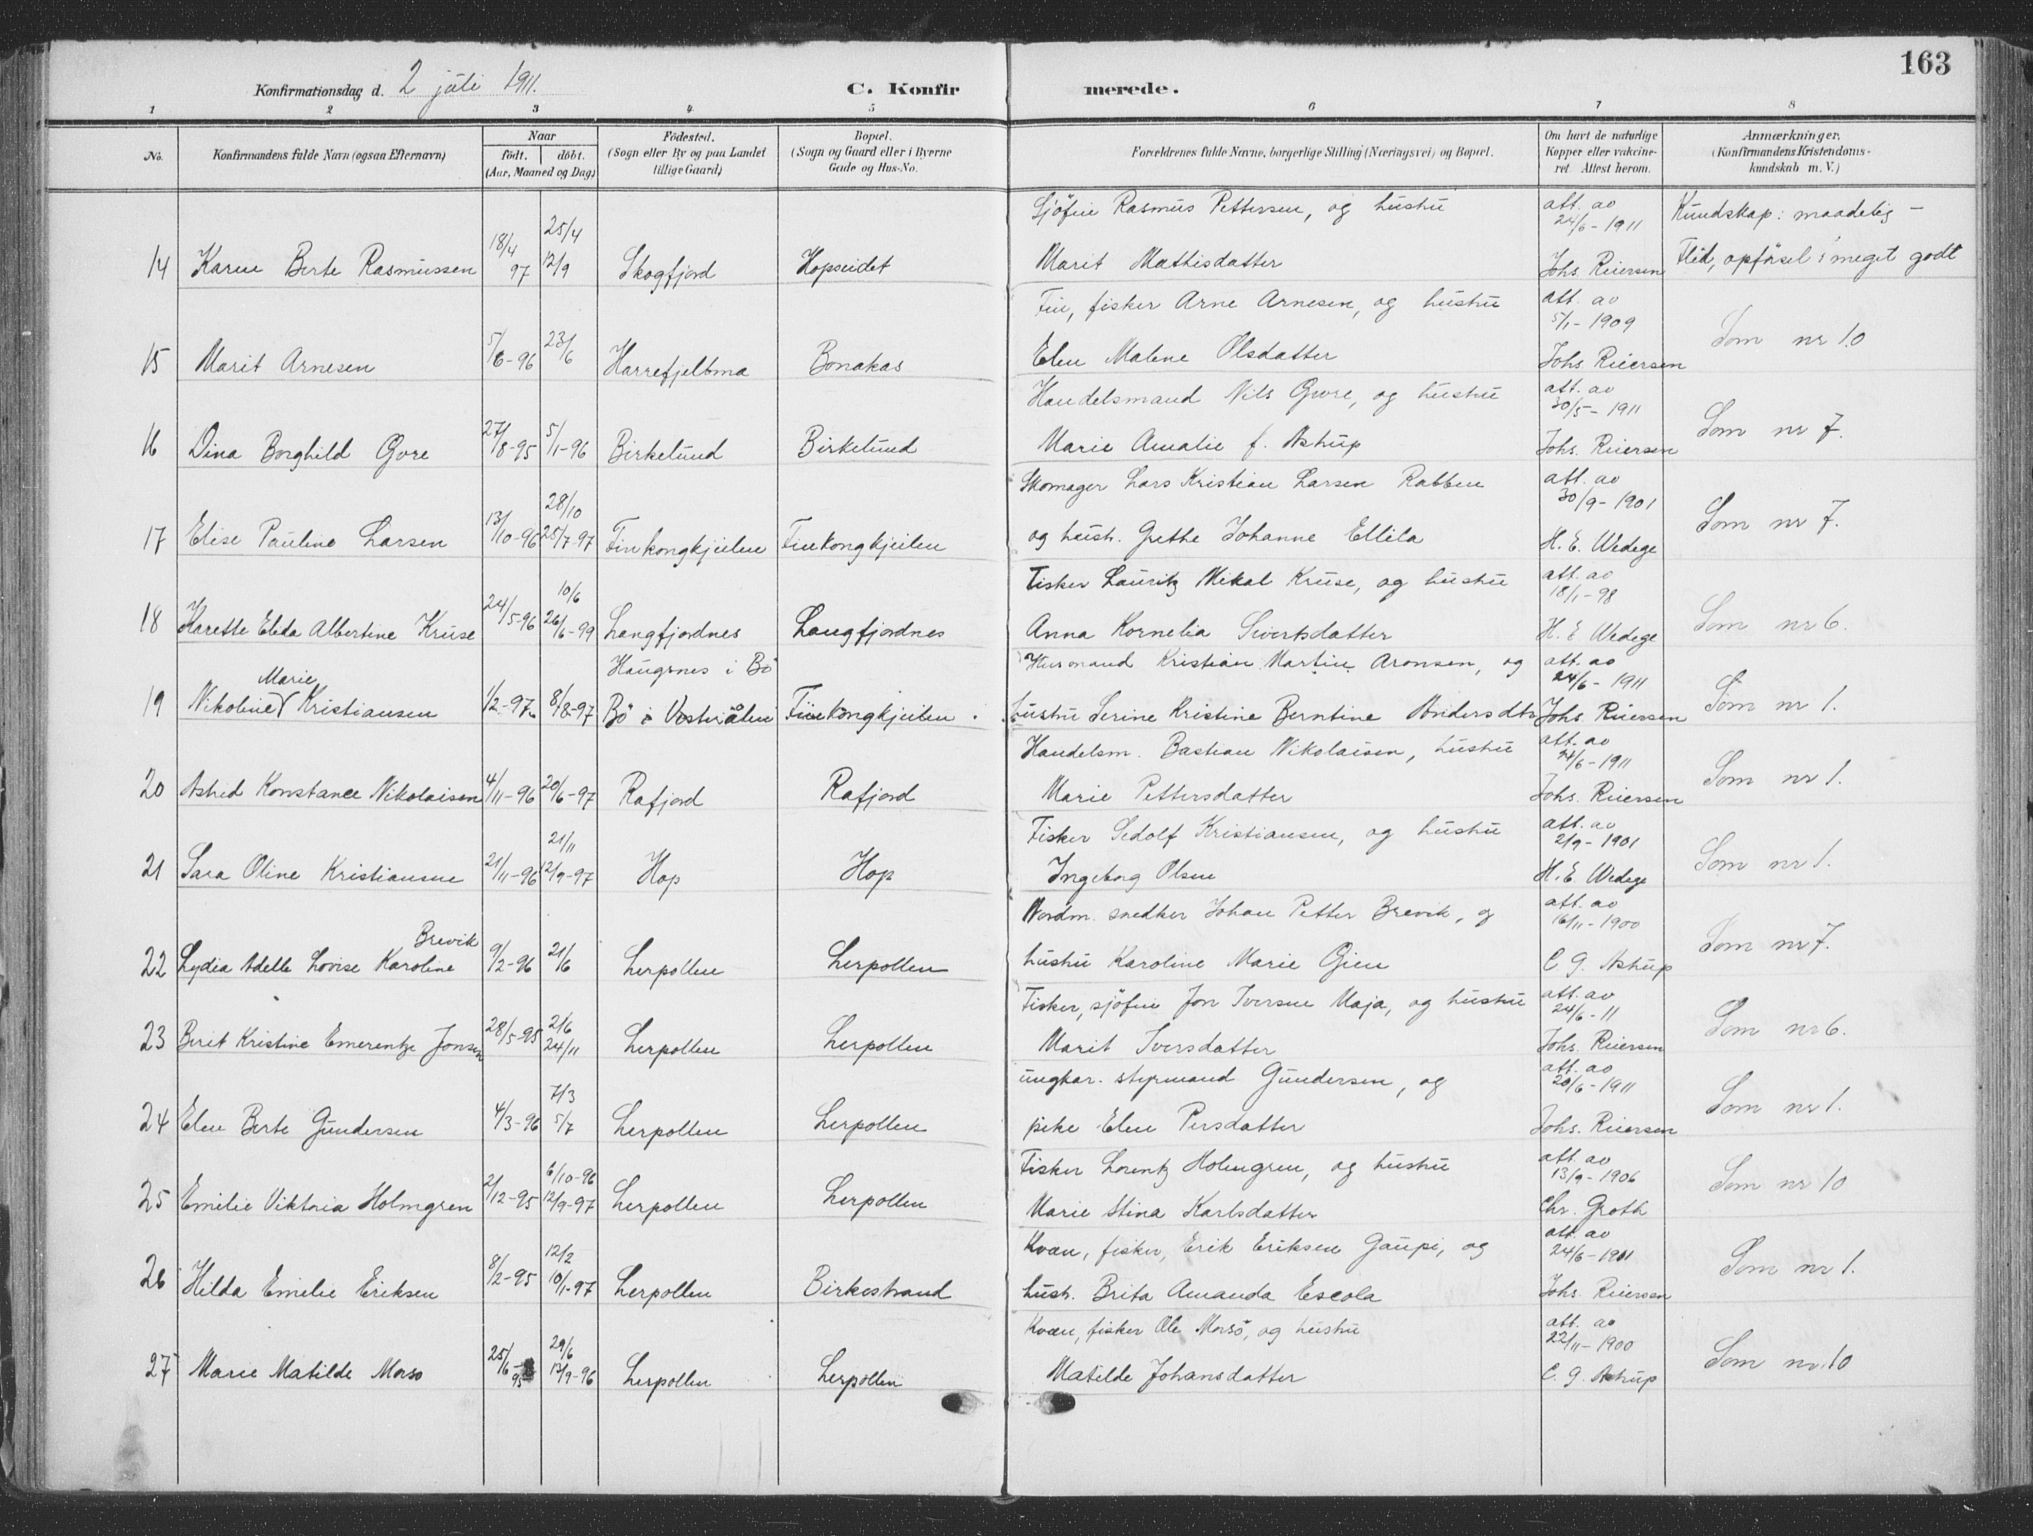 163
Konfirmationsdag d. 2 juli 1911. C. Konfirmerede.
1 2 3 4. 5 6 7 8
No. Konfirmandens fulde Navn (ogsaa Efternavn) Naar födt. döbt. (Aar, Maaned og Dag) Födested. (Sogn eller By og paa Landet tillige Gaard) Bopæl. (Sogn og Gaard eller i Byerne Gade og Hus-No. Forældrenes fulde Navne, borgerlige Stilling (Næringsvei) og Bopæl. Om havt de naturlige Kopper eller vakcineret Attest herom. Anmærkninger, (Konfirmandens Kristendomskundskab m. V.)
Sjöfin Rasmus Pettersen, og hustru att. av 24/6-1911 Kundskap: maadelig -
14 Karen Berte Rasmussen 18/4 97 25/4 12/9 Skogfjord Hopseidet Marit Mathisdatter Johs. Reiersen Flid, opförsel: meget godt
Fin, fisker Arne Arnesen, og hustru att. av 5/1-1909
15 Marit Arnesen 5/6-96 23/6 Harrefjelbma Bonakas Elen Malene Olsdatter Johs Reiersen Som nr 10
Handelsmand Nils Gvre, og hustru att. av 30/5-1911
16 Dina Borghild Gvre 27/8-95 5/1-96 Birkelund Birkelund Marie Amalie f. Astrup Johs. Reiersen Som nr 7.
Skomager Lars Kristian Larsen Rabben att. av 30/9-1901
17 Elise Pauline Larsen 13/10-96 28/10 25/7-97 Finkongkjeilen Finkongkjeilen og hustr. Grethe Johanne Ellila H. E. Wedege Som nr 7.
Fisker Lauritz Mikal Kruse, og hustru att. av 18/1-98
18 Karette Elida Albertine Kruse 24/5-96 10/6 26/6-99 Langfjordnes Langfjordnes Anna Kornelia Sivertsdatter H. E Wedege Som nr 6.
Marie Haugsnes i Bö Husmand Kristian Martin Aronsen, og att. av 24/6-1911
19 Nikoline Kristiansen 1/2-97. 8/8-97 Bö i Vesterålen Finkongkjeilen. hustru Serine Kristine Berntine Andersdtr Johs. Reiersen Som nr 1.
Handelsm. Bastian Nikolaisen, hustru att. av 24/6-1911
20 Astrid Konstance Nikolaisen 4/11-96 20/6-97 Rafjord Rafjord Marie Pettersdatter Johs. Reiersen Som nr 1.
Fisker Sedolf Kristiansen, og hustru att. av 2/9-1901
21 Sara Oline Kristiansen 21/11-96 21/11 12/9-97 Hop Hop Ingeborg Olsen H. E. Wedege Som nr 1.
Brevik Nordm. snedker Johan Petter Brevik, og att. av 16/11-1900
22 Lydia Adelle Lovise Karoline 9/2-96 21/6 Lerpollen Lerpollen hustru Karoline Marie Gien C G. Astrup Som nr 7.
Fisker, sjöfin Jon Iversen Maja, og hustru att. av 24/6-11
23 Berit Kristine Emerentze Jonsen 28/5-95 2/6 24/11 Lerpollen Lerpollen Marit Iversdatter Johs. Reiersen Som nr 6.
ungkar. styrmand Gundersen, og att. av 20/6-1911
24 Elen Berte Gundersen 4/3-96 7/3 5/7 Lerpollen Lerpollen pike Elen Persdatter Johs. Reiersen Som nr 1.
Fisker Lorentz Holmgren, og hustru att. av 13/9-1906
25 Emilie Viktoria Holmgren 2/12-95 6/10-96 12/9-97 Lerpollen Lerpollen Marie Stina Karlsdatter Chr. Groth Som nr 10
Kvæn, fisker, Erik Eriksen Gaupi, og att. av 24/6-1901
26 Hilda Emilie Eriksen 8/2-95 12/2 10/1-97 Lerpollen Birkestrand hustr. Brita Amanda Escola Johs. Reiersen Som nr 1.
Kvæn, fisker Ole Morsö, og hustru att. av 22/11-1900
27 Marie Matilde Morso 25/6 95 29/6 13/9-96 Lerpollen Lerpollen Matilde Johansdatter C. G. Astrup Som nr 10